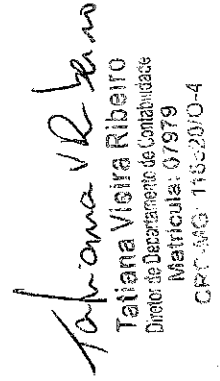 Tatiana V Ribeiro
Tatiana Vieira Ribeiro
Diretor de Departamento de Contabilidade
Matrícula: 07979